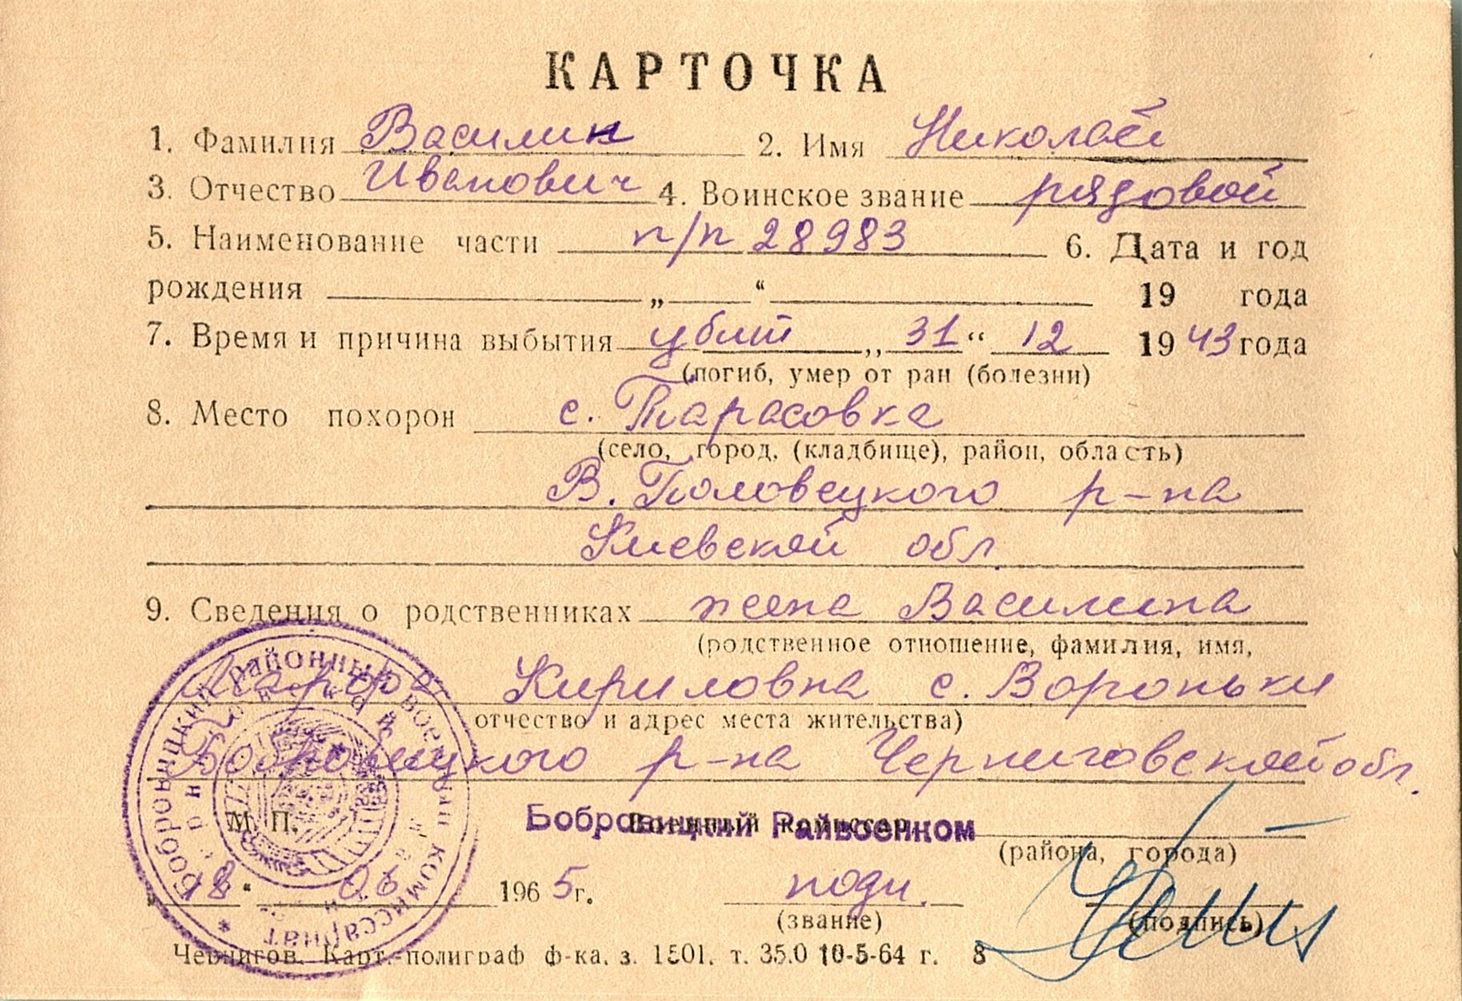 КАРТОЧКА
1. Фамилия Василин 2. Имя Николай
3. Отчество Иванович 4. Воинское звание рядовой
5. Наименование части п/п 28983 6. Дата и год
рождения „ “ 19 года
7. Время и причина выбытия убит „31“ 12 1943 года
(погиб, умер от ран (болезни)
8. Место похорон с. Тарасовка
(село, город, (кладбище), район, область)
В. Половецкого р-на
Киевской обл.
9. Сведения о родственниках жена Василина
(родственное отношение, фамилия, имя,
Кириловна с. Вороньки
отчество и адрес места жительства)
Бобровицкого р-на Черниговской обл.
М. П. Военный комиссар
Бобровицкий Райвоенком
(района, города)
„18“ 06 1965 г. подп.
(звание) (подпись)
Чернигов. Карт.-полиграф ф-ка. з. 1501. т. 35.0 10-5-64 г. 8
Бобровицкий районный военный комиссариат